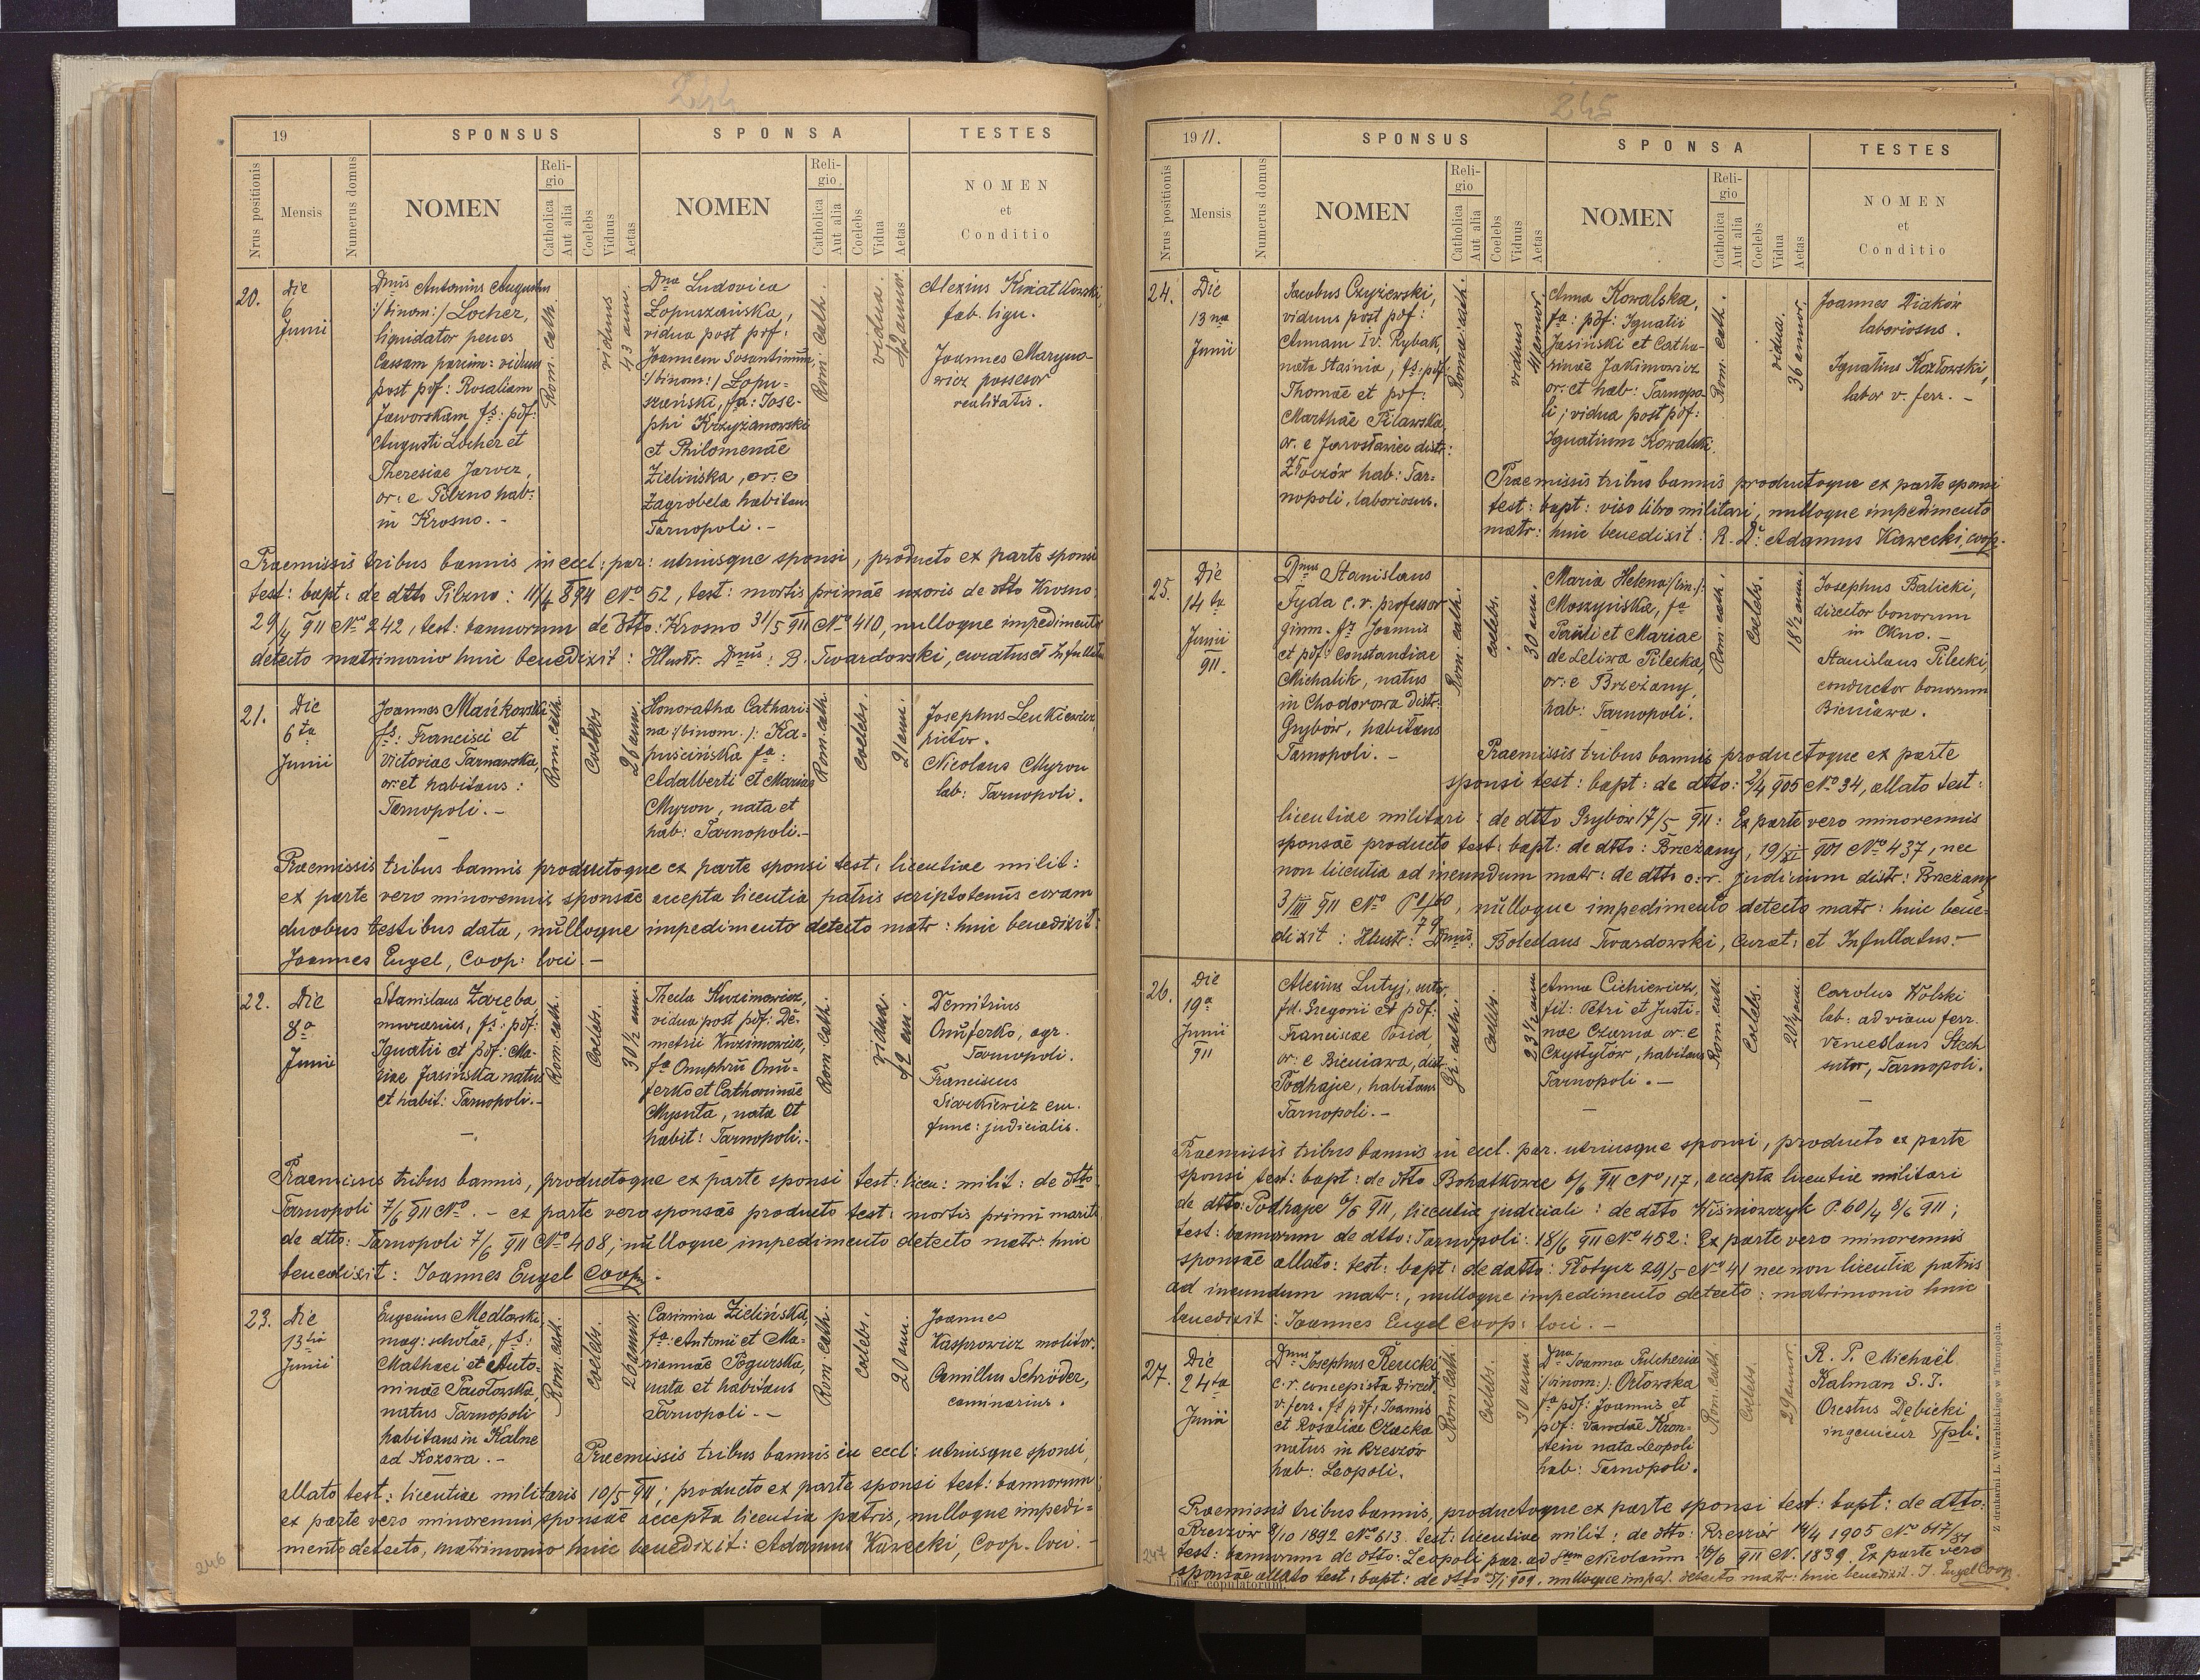 244
19
SPONSUS
SPONSA
TESTES
Nrus positionis
Mensis
Numerus domus
NOMEN
Religio
Catholica
Aut alia
Coelebs
Viduus
Aetas
NOMEN
Religio
Catholica
Aut alia
Coelebs
Vidua
Aetas
NOMEN
et
Conditio
20.
Die
6
Junii
Dnus Antonius Augustus
/:binom:/ Locher,
liquidator penes
Cassam parsim: viduus
post pdf: Rosaliam
Jaworskam fs: pdf:
Augusti Locher et
Theresiae Jarvez,
or: e Pilzno hab:
in Krosno. -
Rom. cath.
viduus
43 ann.
Dna Ludovica
Łopuszańska,
vidua post pdf:
Joannem
/:binom:/ Łopu-
szański, fa: Jose-
phi Krzyżanowski
et Philomenae
Zielińska, or: e
Zagrobela habitans
Tarnopoli. -
Rom: Cath.
vidua.
42 annor.
Alexius Kwiatkowski,
fab. lign.
Joannes Maryno-
wicz possesor
realitatis.
Praemissis tribus bannis in eccl: par: utriusque sponsi, producto ex parte sponsi
test: bapt: de dtto Pilzno: 11/4 894 No 52, test: mortis primae uxoris de dtto Krosno
29/4 911 No 242, test: bannorum de dtto: Krosno 31/5 911 No 410, nulloque impedimento
detecto matrimonio huic benedixit: Illustr. Dnus: B. Twardowski, curatus et Infullatus
21.
Die
6ta
Junii
Joannes Mańkowski
fs: Francisci et
Victoriae Tarnawska,
or: et habitans:
Tarnopoli. -
Rom. cath.
Coelebs
26 ann.
Honoratha Cathari-
na /:binom.:/ Ka-
puścińska fa:
Adalberti et Mariae
Myron, nata et
hab: Tarnopoli. -
Rom. cath.
coelebs.
21 ann.
Josephus Leukiewicz,
pictor.
Nicolaus Myron
lab: Tarnopoli.
Praemissis tribus bannis productoque ex parte sponsi test: licentiae milit:
ex parte vero minorennis sponsae accepta licentia patris scriptotenus coram
duobus testibus data, nulloque impedimento detecto matr: huic benedixit:
Joannes Engel, Coop: loci. -
22.
Die
8a
Junii
Stanislaus Zaręba,
murarius, fs: pdf:
Ignatii et pdf: Ma-
riae Jasińska natus
et habit: Tarnopoli. -
Rom. cath.
Coelebs.
30 1/2 ann.
Thecla Kuzimowicz,
vidua post pdf: De-
metrii Kuzimowicz,
fa Onuphrii Onu-
ferko et Catharinae
Mysuta, nata et
habit: Tarnopoli. -
Rom. Cath.
vidua.
42 ann.
Demitrius
Onuferko, agr.
Tarnopoli.
Franciscus
Siarkiewicz em.
func: judicialis.
Praemissis tribus bannis, productoque ex parte sponsi test: licen: milit: de dtto
Tarnopoli 7/6 911 No . - ex parte vero sponsae producto test: mortis primi mariti
de dtto: Tarnopoli 7/6 911 No 408, nulloque impedimento detecto matr: huic
benedixit: Joannes Engel Coop.
23.
Die
13tia
Junii
Eugenius Medlarski,
mag: scholae, fs:
Mathaei et Anto-
ninae Pawłowska,
natus Tarnopoli
habitans in Kalne
ad Kozowa. -
Rom. cath.
coelebs.
26 annor.
Casimira Zielińska,
fa: Antonii et Ma-
riannae Pogurska,
nata et habitans
Tarnopoli. -
Rom. cath.
coelebs.
20 ann.
Joannes
Kasprowicz molitor.
Camillus Schröder,
caminarius.
Praemissis tribus bannis in eccl: utriusque sponsi,
allato test: licentiae militaris 10/5 911; producto ex parte sponsi test: bannorum;
ex parte vero minorennis sponsae accepta licentia patris, nulloque impedi-
mento detecto, matrimonio huic benedixit: Adamus Kawecki, Coop. loci. -
246
245
1911.
SPONSUS
SPONSA
TESTES
Nrus positionis
Mensis
Numerus domus
NOMEN
Religio
Catholica
Aut alia
Coelebs
Viduus
Aetas
NOMEN
Religio
Catholica
Aut alia
Coelebs
Vidua
Aetas
NOMEN
et
Conditio
24.
Die
13na
Junii
Jacobus Czyżewski,
viduus post pdf:
Annam Iv. Rybak,
nata Staśnia, fs: pdf:
Thomae et pdf:
Marthae Pilawska,
or. e Jarosławice distr:
Złoczów hab: Tar-
nopoli, laboriosus.
Rom: cath.
viduus
41 annor.
Anna Kowalska,
fa: pdf: Ignatii
Jasinski et Catha-
rinae Jakimowicz
or: et hab: Tarnopo-
li; vidua post pdf:
Ignatium Kowalski.
Rom. cath.
vidua.
36 annor.
Joannes Diaków
laboriosus.
Ignatius Kozłowski,
labor v. ferr. -
Praemissis tribus bannis productoque ex parte sponsi
test: bapt: viso libro militari, nulloque impedimento
matr: huic benedixit: R. D: Adamus Kawecki, coop.
25.
Die
14ta
Junii
911.
Dnus Stanislaus
Fyda c.r. professor
gimn. fs Joannis
et pdf: Constantiae
Michalik, natus
in Chodorowa distr:
Grybów, habitans
Tarnopoli. -
Rom. cath.
coelebs.
30 ann.
Maria Helena /:bin.:/
Moszyńska, fa
Pauli et Mariae
de Leliwa Pilecka,
or: e Brzeżany,
hab: Tarnopoli.
Rom: cath.
Coelebs.
18 1/2 ann.
Josephus Balicki,
director bonorum
in Okno. -
Stanislaus Pilecki,
conductor bonorum
Bieniawa.
Praemissis tribus bannis productoque ex parte
sponsi test: bapt: de dtto: 2/4 905 No 34, allato test:
licentiae militari: de dtto Grybów 17/5 911: Ex parte vero minorennis
sponsae producto test: bapt: de dtto: Brzeżany, 19/XI 901 No 437, nec
non licentia ad ineundum matr: de dtto c.r. judicium distr: Brzeżany
3/III 911 No P 1/60 79, nulloque impedimento detecto matr: huic bene-
dixit: Illustr: Dnus: Boleslaus Twardowski, Curat: et Infullatus. -
26.
Die
19a
Junii
911
Alexius Lutyj, sutor,
fil. Gregorii et pdf:
Franciscae
or: e Bieniawa, dist.
Podhajce, habitans
Tarnopoli. -
Gr. cath.
Coelebs.
23 1/2 ann.
Anna Cichiewicz,
fil: Petri et Justi-
nae Czarna or: e
Czystyłów, habitans
Tarnopoli. -
Rom. cath.
Coelebs.
20 1/4 ann.
Carolus Wolski
lab: ad viam ferr.
Venceslaus Stech
sutor, Tarnopoli.
Praemissis tribus bannis in eccl. par. utriusque sponsi, producto ex parte
sponsi test: bapt: de dtto Bohatkowce 6/6 911 No 117, accepta licentiae militari
de dtto: Podhajce 6/6 911, licentia judiciali: de dtto Wiśniowczyk P. 60/4 8/6 911;
test: bannorum de dtto: Tarnopoli: 18/6 911 No 452: Ex parte vero minorennis
sponsae allato: test: bapt: de datto: Płotycz 29/5 No 41 nec non licentia patris
ad ineundum matr:, nulloque impedimento detecto: matrimonio huic
benedixit: Joannes Engel Coop: loci. -
27.
Die
24ta
Junii
Dnus Josephus Rencki
c.r. concepista Direct.
v. ferr. fs pdf: Joannis
et Rosaliae Czacka
natus in Rzeszów
hab: Leopoli.
Rom. cath.
Coelebs.
30 ann
Dna Joanna Pulcheria
/:binom:/ Orłowska
fa pdf: Joannis et
pdf: Vandae Kron-
stein nata Leopoli
hab: Tarnopoli.
Rom. cath.
Coelebs.
29 annor.
R. P. Michaël
Kalman S. J.
Orestus Dębicki
ingenieur Tpli.
Praemissis tribus bannis, productoque ex parte sponsi test: bapt: de dtto:
Rzeszów 8/10 1892 No 613. test: licentiae milit: de dtto: Rzeszów 14/4 1905 No 617/31
test: bannorum de dtto: Leopoli par. ad Stum Nicolaum 20/6 911 N. 1839. Ex parte vero
sponsae allato test: bapt: de dtto 909. nulloque imped. detecto matr: huic benedixit. J. Engel Coop.
247
Liber copulatorum.
Z drukarni L. Wierzbickiego w Tarnopolu.